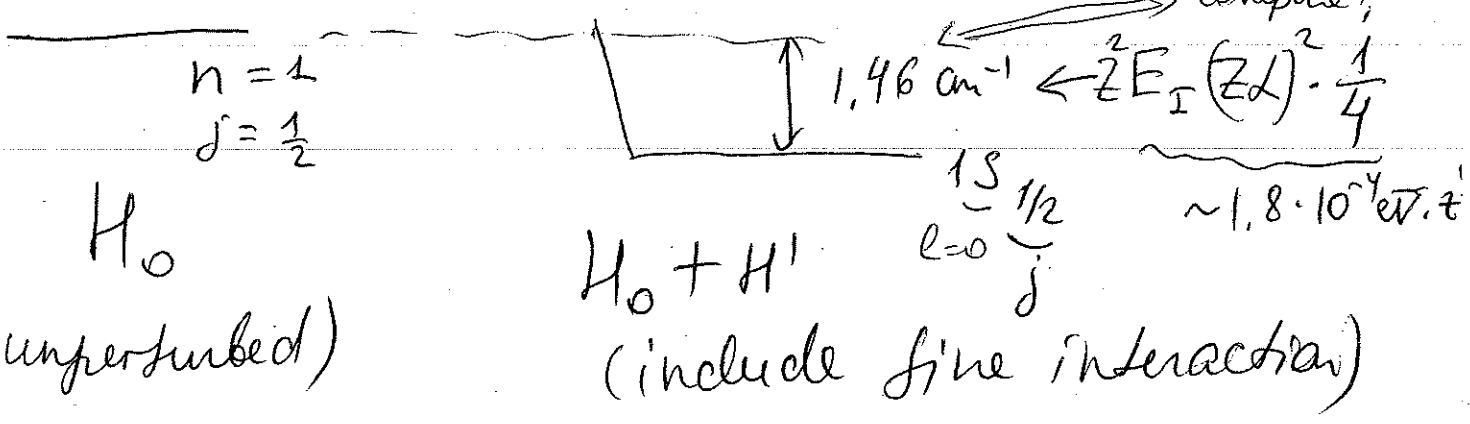 compare,
n = 1
j = 1/2
1,46 cm⁻¹ ← Z²E_I(Zα)²·1/4
1S 1/2
l=0 j
~1,8·10⁻⁴eV.z
H₀
H₀ + H'
unperturbed)
(include fine interaction)